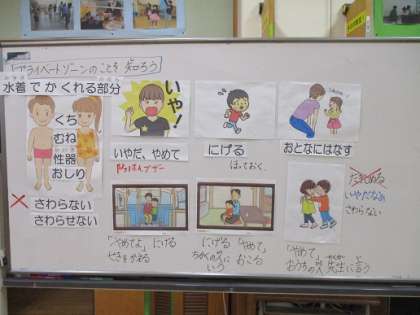 プライベートゾーンのことを知ろう
水着でかくれる部分
くち
むね
性器
おしり
さわらない
さわらせない
いや!
いやだ、やめて
防はんブザー
にげる
ほっておく
おとなにはなす
「やめてよ」にげる
せきをかえる
にげる「やめて」
おこる
ちかくの人に
いう
いやだなぁ
さわらない
「やめて」
おうちの人 先生に言う